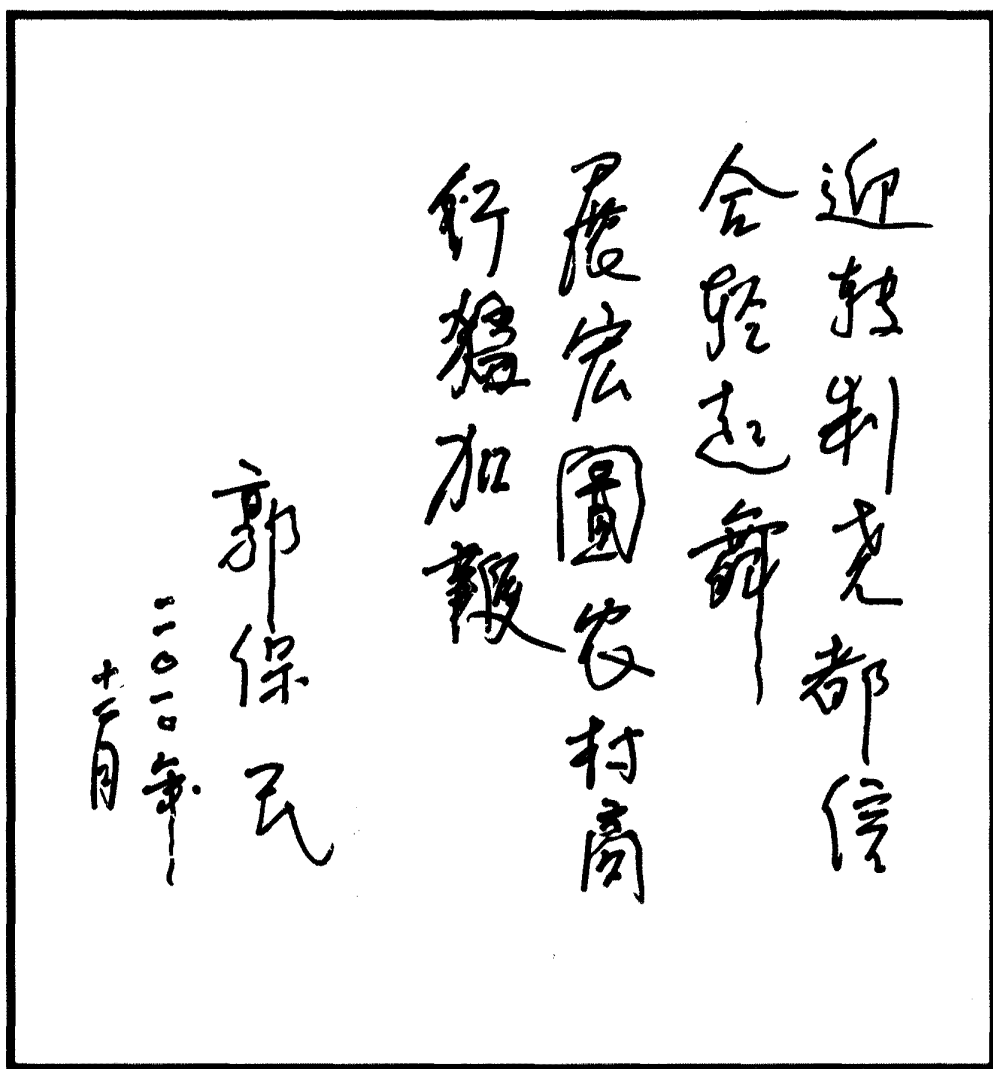 迎转制尧都信
合轻起舞
展宏圖农村商
行猛加鞭
郭保民
二〇一〇年
十二月